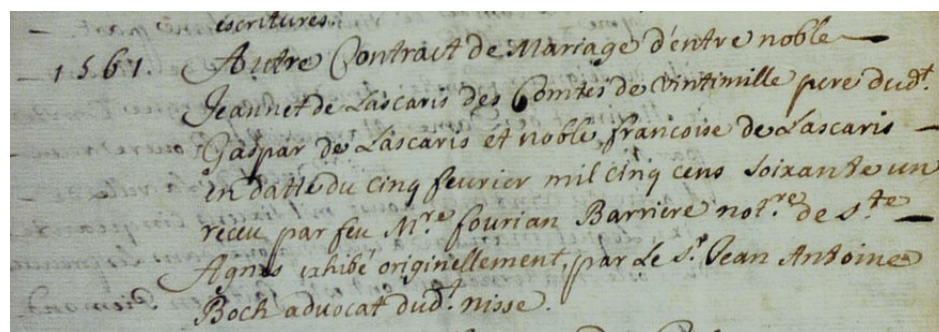 escritures.
1561. Autre Contract de Mariage d'entre noble
Jeannet de Lascaris des Comtes de Vintimille pere dud.t
Gaspar de Lascaris et noble francoise de Lascaris
en datte du cinq feurier mil cinq cens soixante un
receu par feu M.re fourian Barriere not.re de S.te
Agnes exhibé originellement, par Le S.r Jean Antoine
Bock aduocat dud.t nisse.